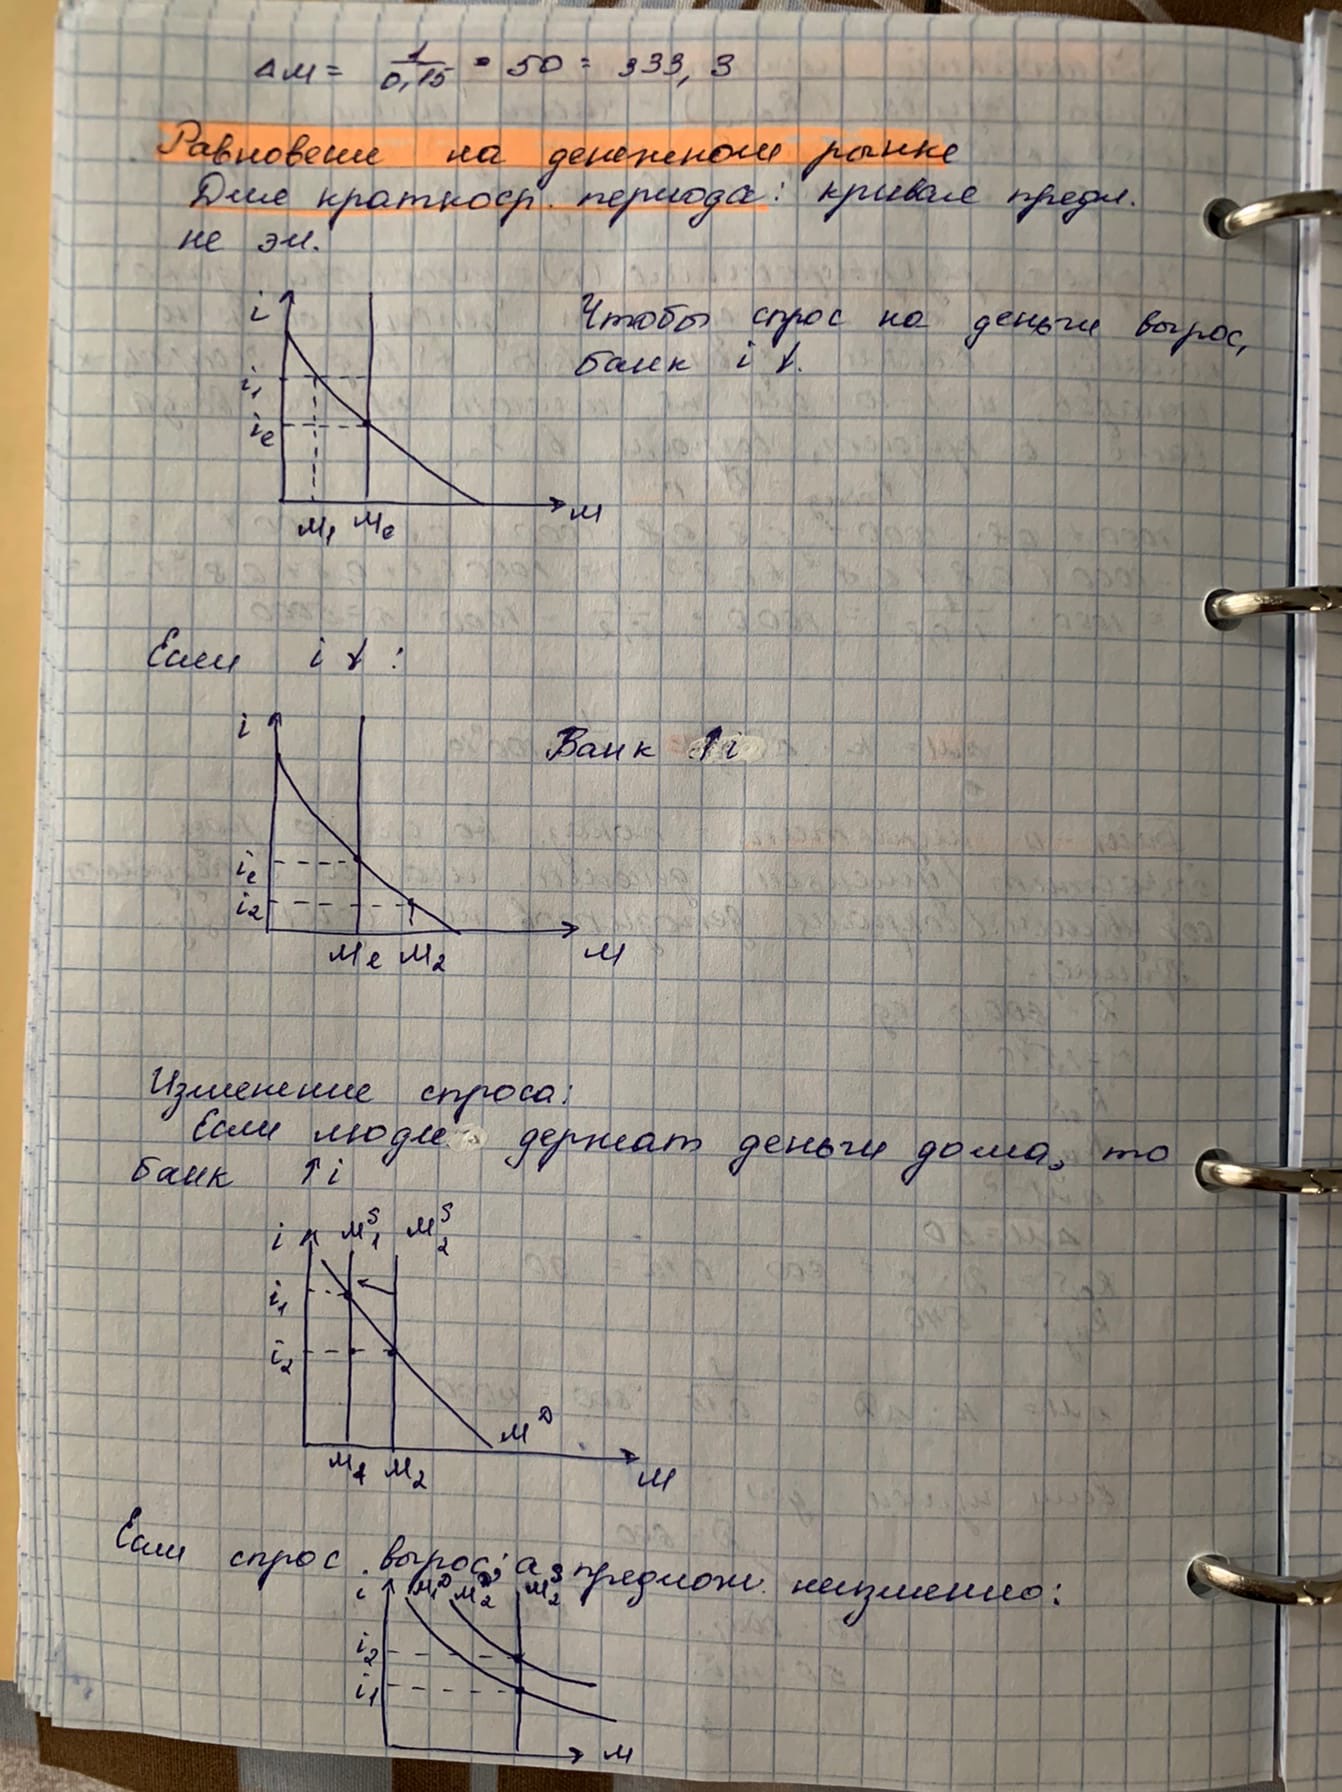 ΔM = 1/0,15 · 50 = 333,3
Равновесие на денежном рынке
Для краткоср. периода: кривая предл.
не эл.
i
Чтобы спрос на деньги вырос,
банк i ↓.
i₁
iₑ
M₁ Mₑ M
Если i ↓:
i
Банк ↑i
iₑ
i₂
Mₑ M₂ M
Изменение спроса:
Если люди держат деньги дома, то
банк ↑i
i M₁ˢ M₂ˢ
i₁
i₂
Mᴰ
M₁ M₂ M
Если спрос вырос, а предлож. неизменно:
i M₁ᴰ M₂ᴰ M₂ˢ
i₂
i₁
M